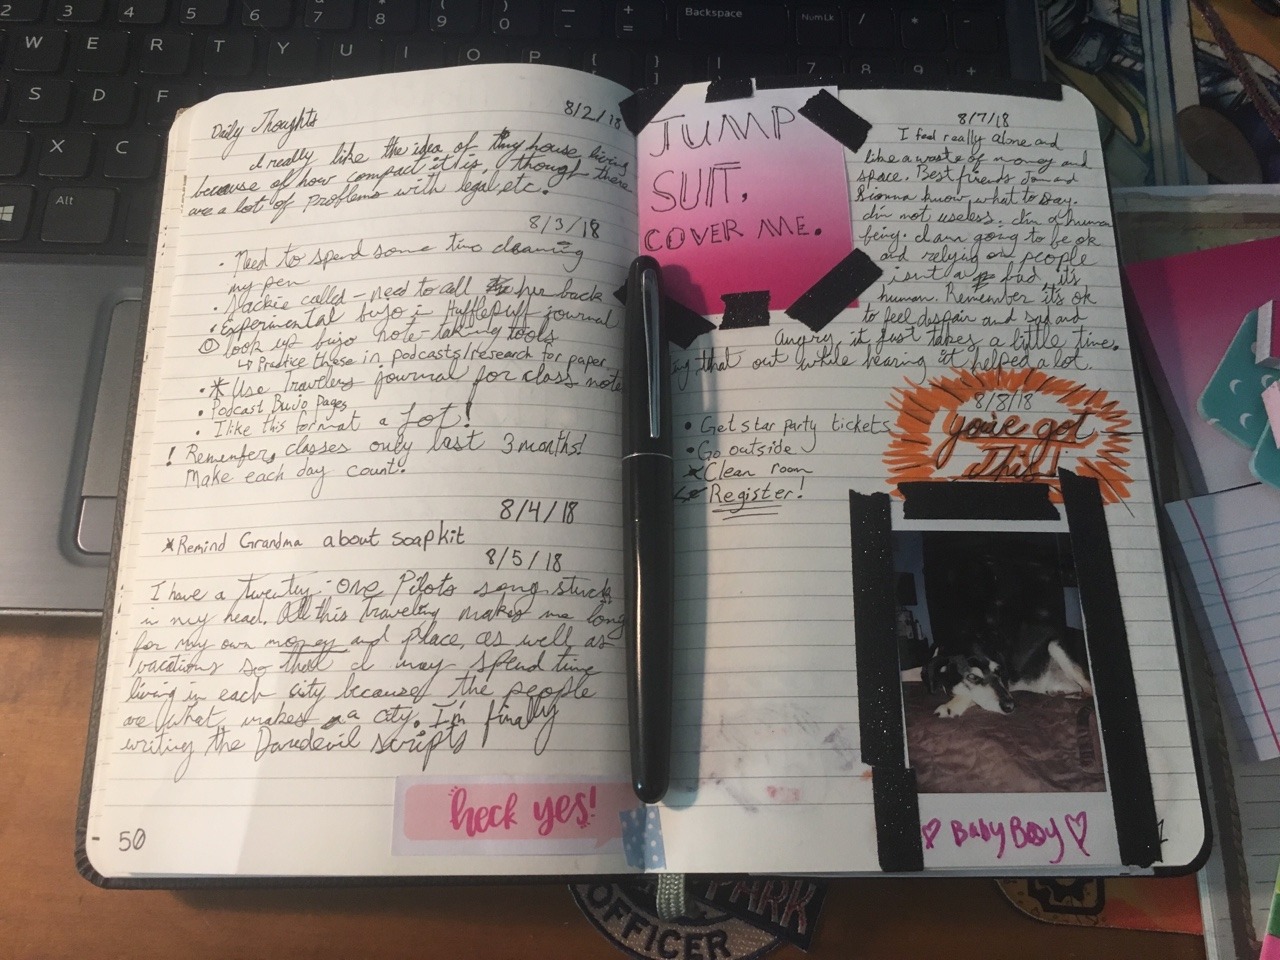 Daily Thoughts
8/2/18
I really like the idea of tiny house living
because of how compact it is, though there
are a lot of problems with legal, etc.
8/3/18
· Need to spend some time cleaning
my pen
· Jackie called - need to call her back
· Experimental bujo in Hufflepuff journal
look up bujo note-taking tools
↳ Practice these in podcasts/research for paper
· * Use Travelers journal for class notes
· Podcast Bujo Pages
· I like this format a Lot!
! Remember, classes only last 3 months!
Make each day count.
8/4/18
Remind Grandma about soap kit
8/5/18
I have a twenty-one Pilots song stuck
in my head. All this traveling makes me long
for my own money and place, as well as
vacations so that I may spend time
living in each city because the people
are what makes a city. I'm finally
writing the Daredevil scripts
heck yes!
50
JUMP
SUIT,
COVER ME.
8/7/18
I feel really alone and
like a waste of money and
space. Best friends and
know what to say.
I'm not useless. I'm a human
being. I am going to be ok
and relying on people
isn't bad, it's
human. Remember it's ok
to feel despair and sad and
Angry, it just takes a little time.
that out while hearing it helped a lot.
8/8/18
you've got
This!
• Get star party tickets
• Go outside
Clean room
Register!
♡ Baby Boy ♡
PARK
OFFICER
2 3 4 5 6 7 8 9 0 - = Backspace NumLk / * -
W E R T Y U I O P { [ } ] | \ 7 8 9 +
S D
X C
Alt